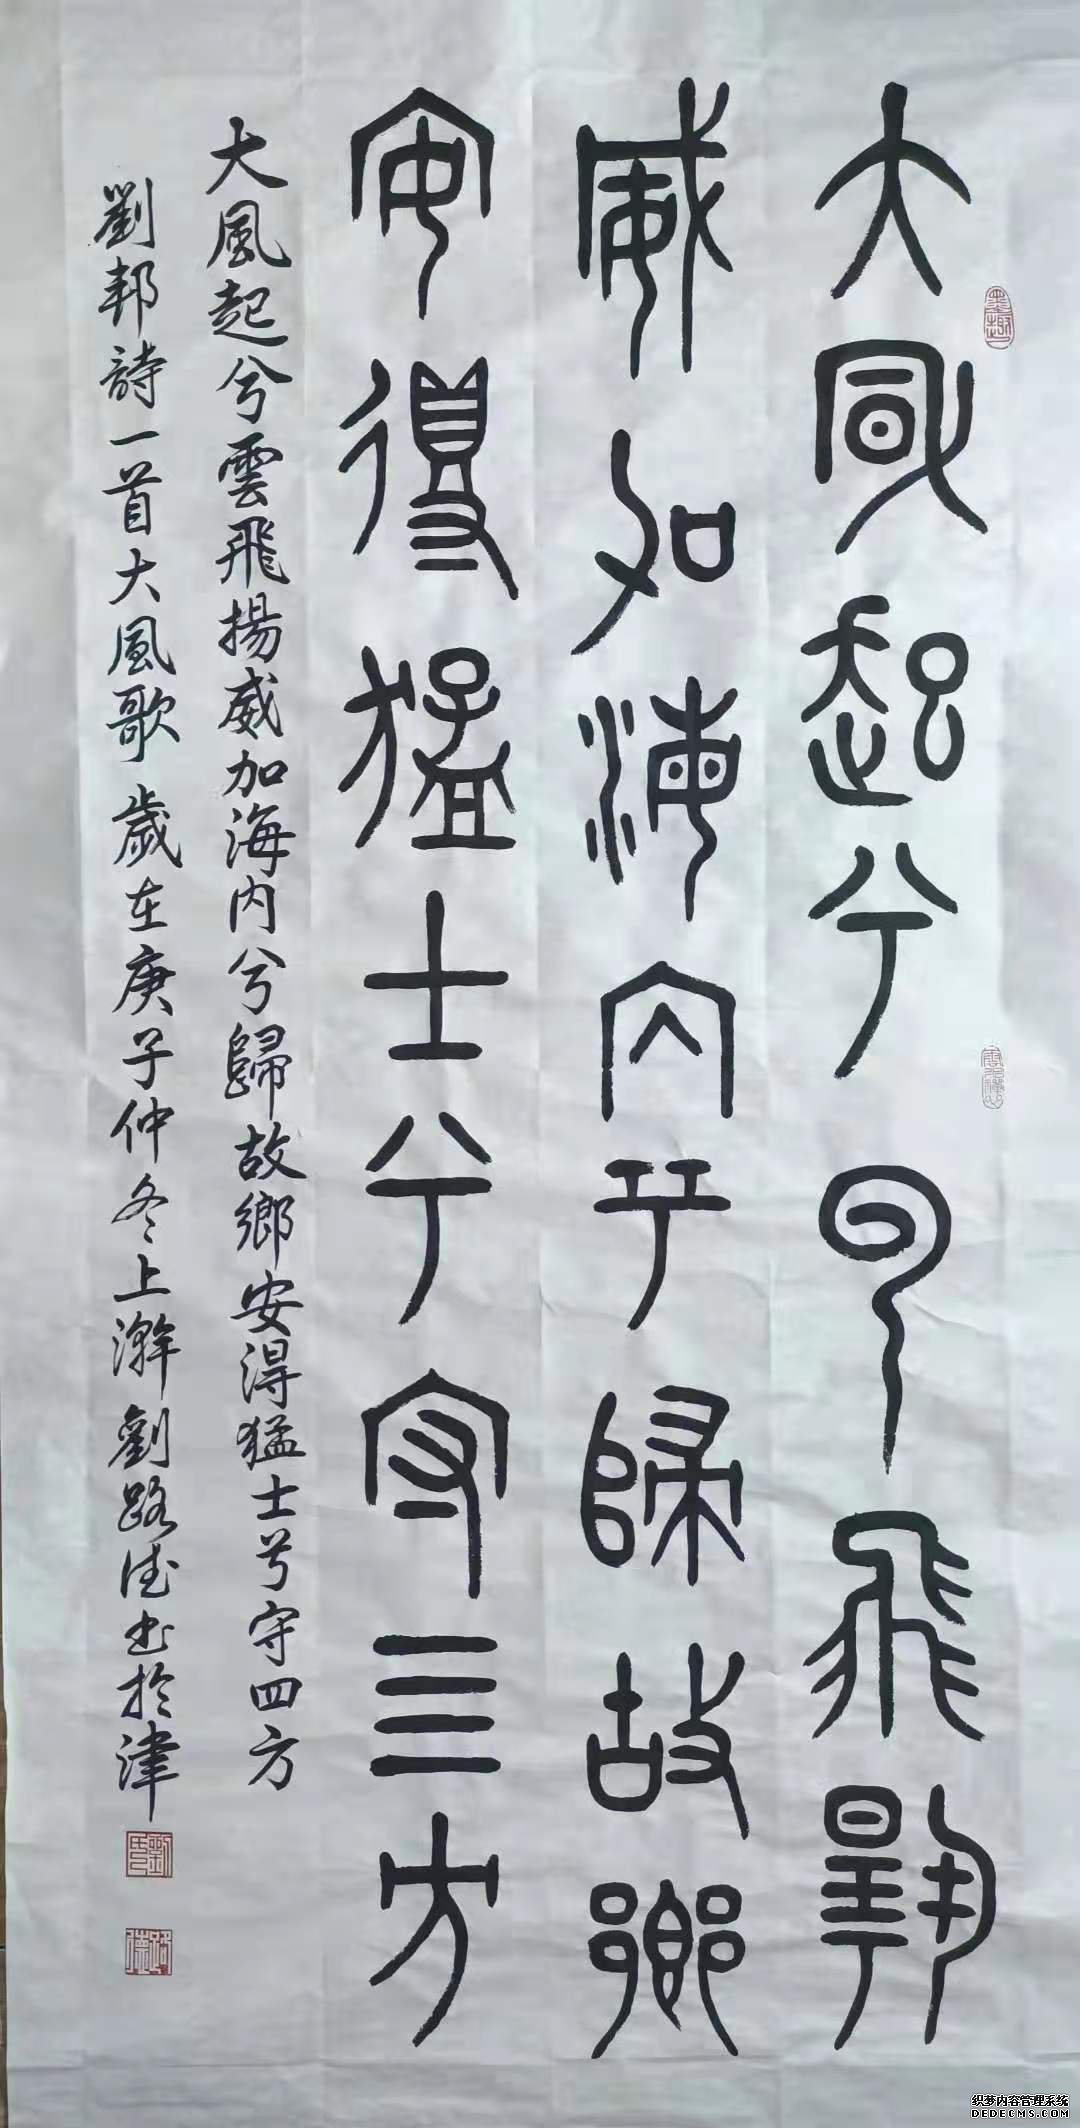 大風起兮云飛揚
威加海内兮歸故鄉
安得猛士兮守四方
大風起兮雲飛揚威加海内兮歸故鄉安得猛士兮守四方
劉邦詩一首大風歌歲在庚子仲冬上澣劉路德书於津
墨趣
劉印
路德
织梦内容管理系统
DEDECMS.COM